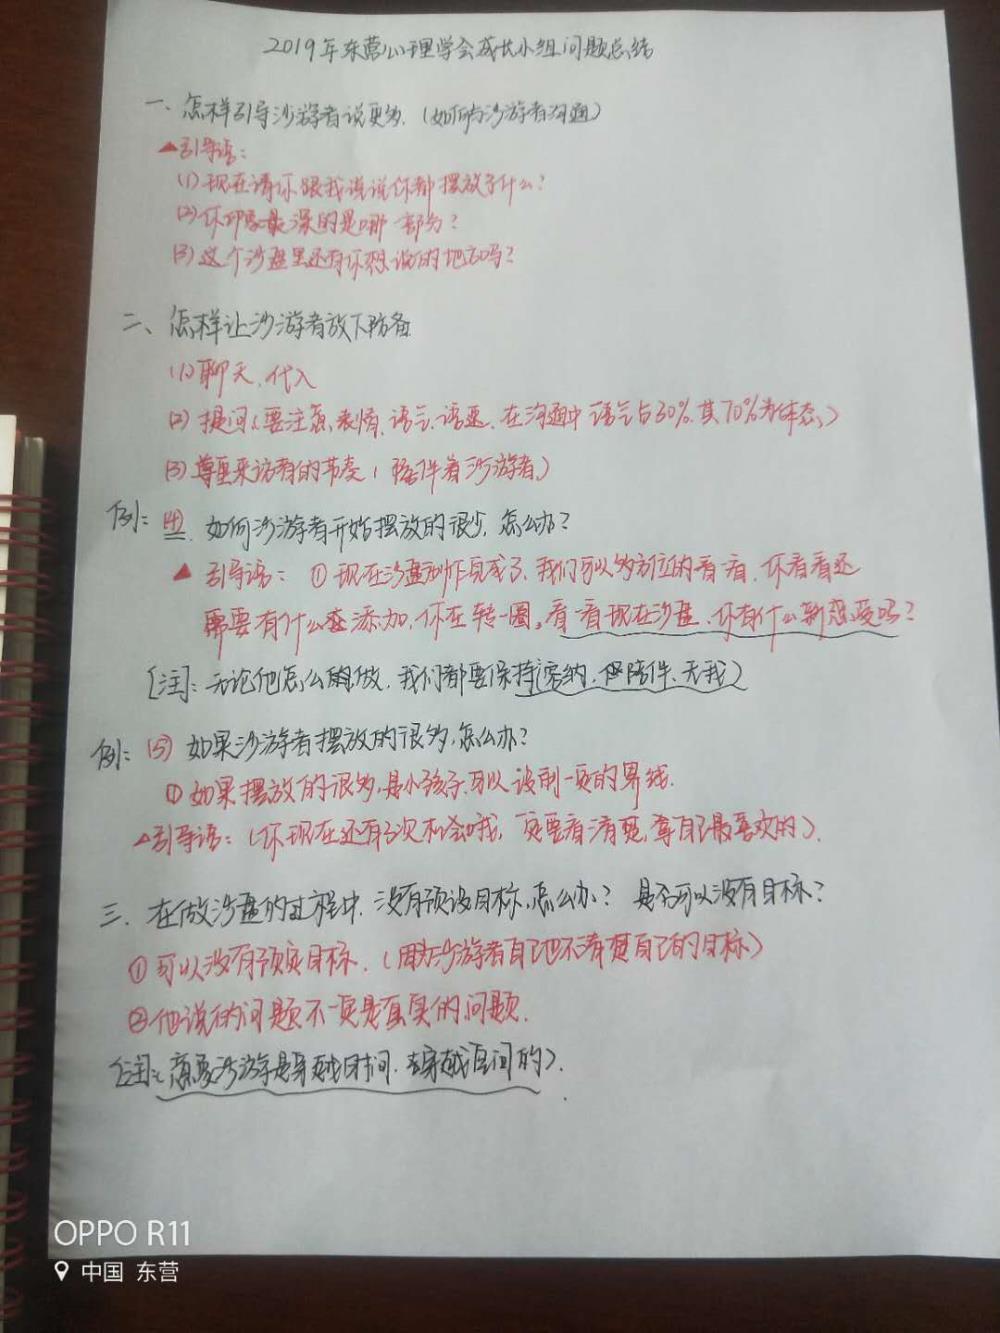 2019年东营心理学会成长小组问题总结
一、怎样引导沙游者说更多.(如何与沙游者沟通)
▲引导语:
(1)现在请你跟我说说你都摆放了什么?
(2)你印象最深的是哪一部分?
(3)这个沙盘里还有你想说的地方吗?
二、怎样让沙游者放下防备
(1)聊天、代入
(2)提问(要注意,表情、语言、语速.在沟通中语言占30%.其70%为体态)
(3)尊重来访者的节奏(陪伴着沙游者)
例:(4).如何沙游者开始摆放的很少,怎么办?
▲引导语:①现在沙盘制作完成了,我们可以多方位的看看.你看看还
需要有什么在添加,你在转一圈。看看现在沙盘.你有什么新感受吗?
[注]:无论他怎么做,我们都要保持(容纳、陪伴、无我)
例:(5)如果沙游者摆放的很多,怎么办?
①如果摆放的很多,是小孩子.可以设制一定的界线.
▲引导语:(你现在还有3次机会哦,一定要看清楚,拿自己最喜欢的).
三、在做沙盘的过程中.没有预设目标,怎么办?是否可以没有目标?
①可以没有预定目标.(因为沙游者自己也不清楚自己的目标)
②他说的问题不一定是真实的问题.
[注]:(意象沙游是穿越时间、穿越空间的).
OPPO R11
中国 东营